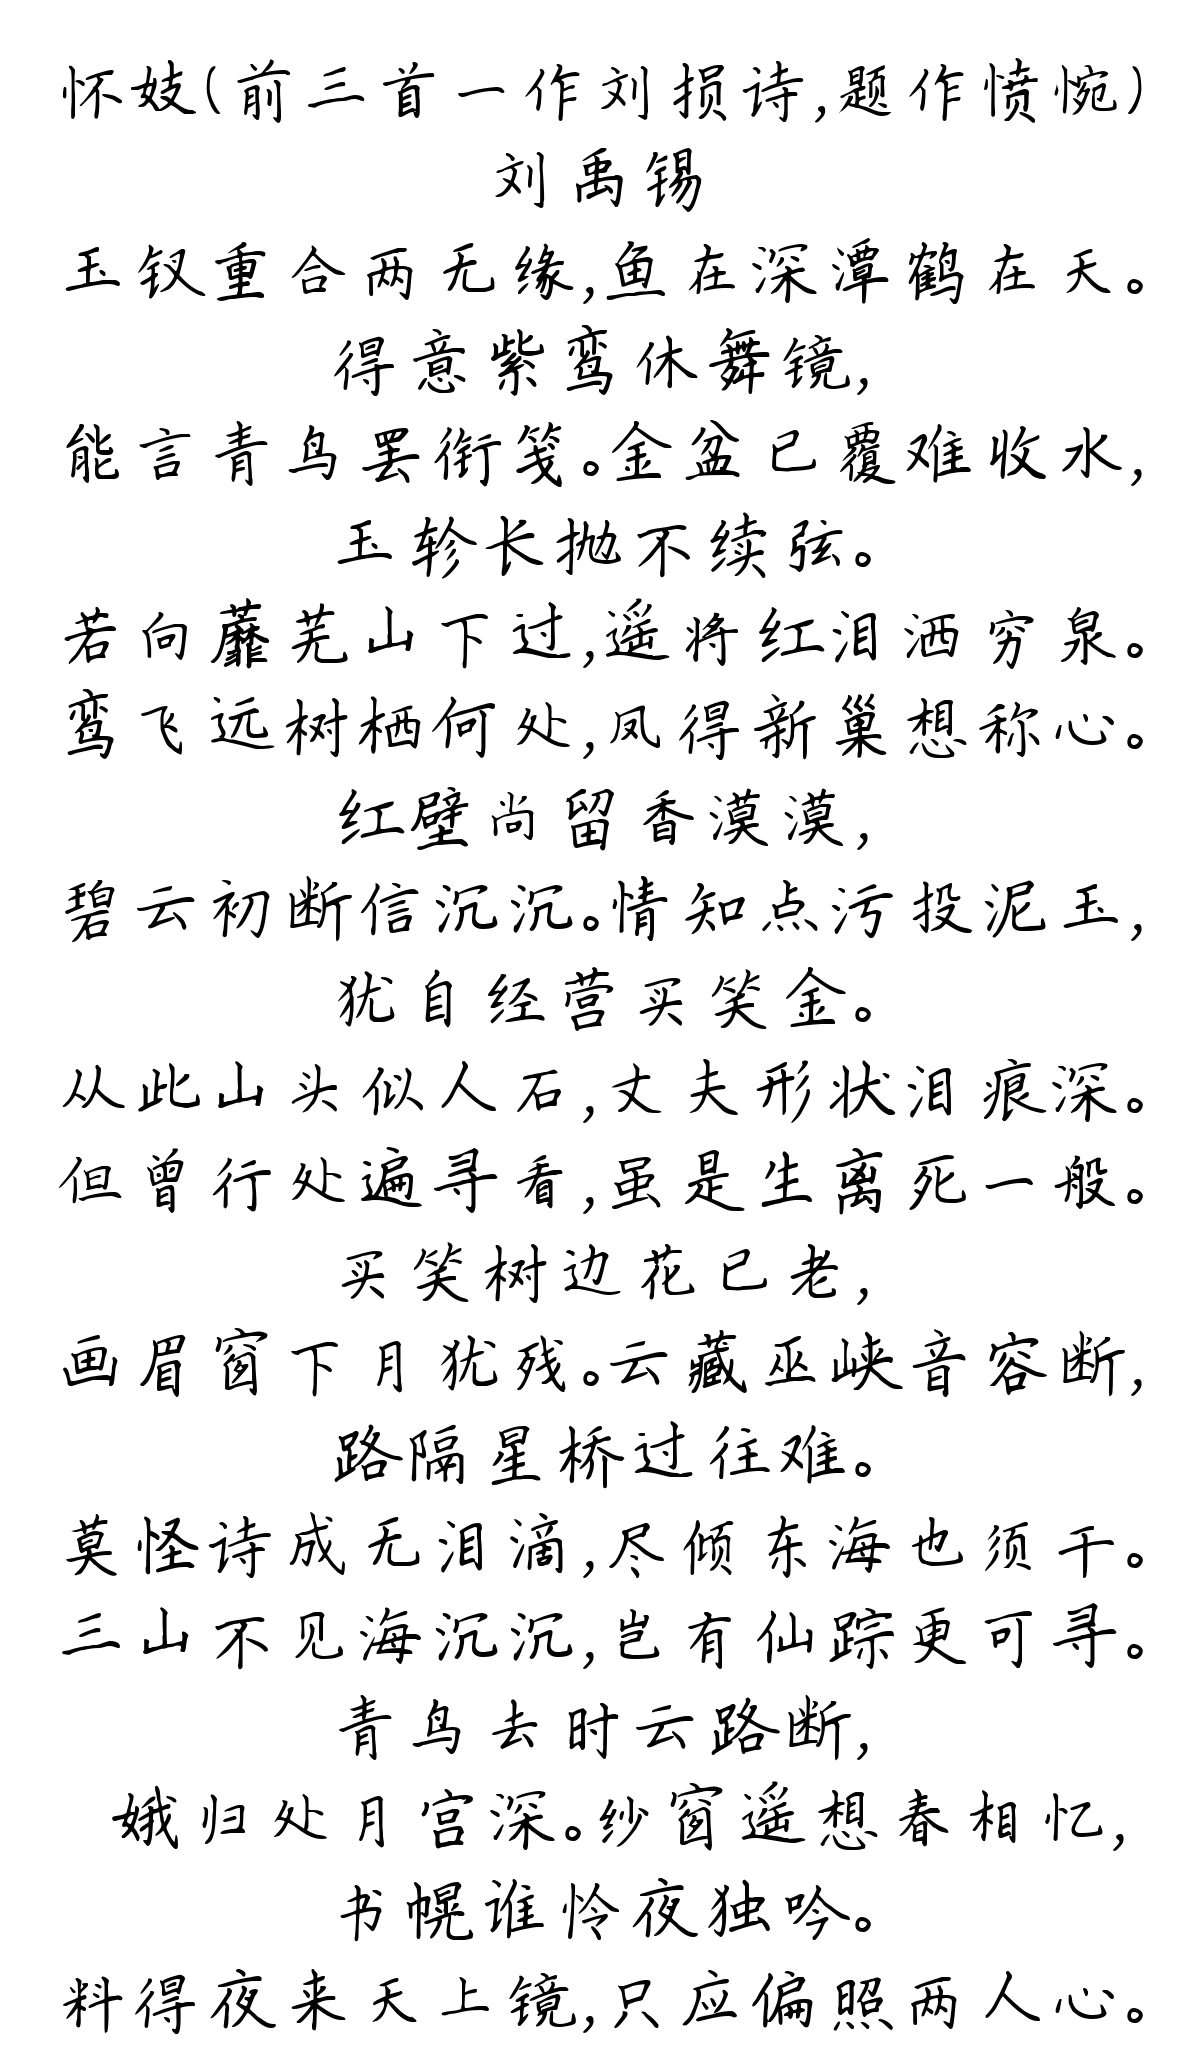 怀妓(前三首一作刘损诗,题作愤惋)
刘禹锡
玉钗重合两无缘,鱼在深潭鹤在天。
得意紫鸾休舞镜,
能言青鸟罢衔笺。金盆已覆难收水,
玉轸长抛不续弦。
若向蘼芜山下过,遥将红泪洒穷泉。
鸾飞远树栖何处,凤得新巢想称心。
红壁尚留香漠漠,
碧云初断信沉沉。情知点污投泥玉,
犹自经营买笑金。
从此山头似人石,丈夫形状泪痕深。
但曾行处遍寻看,虽是生离死一般。
买笑树边花已老,
画眉窗下月犹残。云藏巫峡音容断,
路隔星桥过往难。
莫怪诗成无泪滴,尽倾东海也须干。
三山不见海沉沉,岂有仙踪更可寻。
青鸟去时云路断,
娥归处月宫深。纱窗遥想春相忆,
书幌谁怜夜独吟。
料得夜来天上镜,只应偏照两人心。